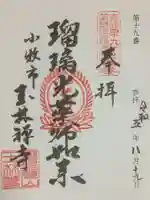 第十九番
奉拝
令和五年八月十九日
瑠璃光薬師如来
小牧市
玉林禅寺